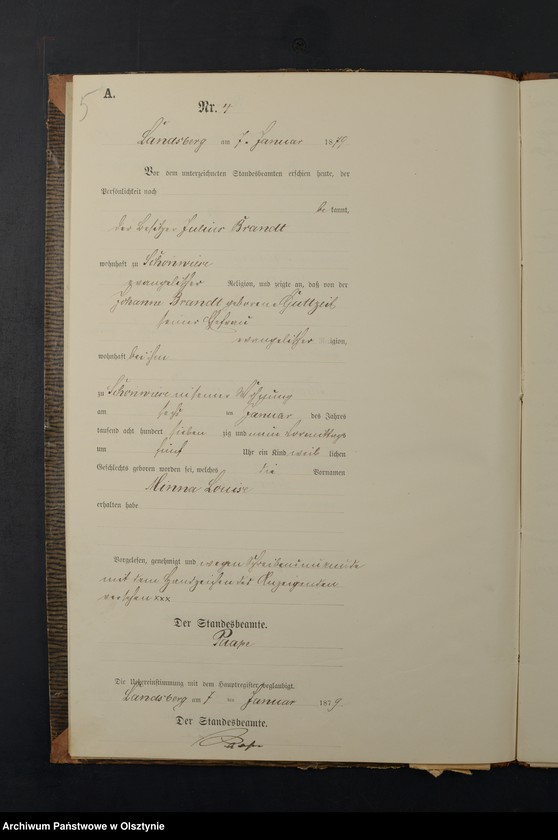 5
A.
Nr. 4
Landsberg am 7. Januar 1879
Vor dem unterzeichneten Standesbeamten erschien heute, der
Persönlichkeit nach
be kannt,
der Besitzer Julius Brandt
wohnhaft zu Schönwiese
evangelischer Religion, und zeigte an, daß von der
Johanne Brandt geboren Guttzeit
seiner Ehefrau
evangelischer Religion,
wohnhaft bei ihm
zu Schönwiese in seiner Wohnung
am sechs ten Januar des Jahres
tausend acht hundert sieben zig und neun Vormittags
um fünf Uhr ein Kind weib lichen
Geschlechts geboren worden sei, welches die Vornamen
Minna Louise
erhalten habe
Vorgelesen, genehmigt und wegen Schreibensunkunde
mit dem Handzeichen des Anzeigenden
versehen xxx
Der Standesbeamte.
Paape
Die Uebereinstimmung mit dem Hauptregister beglaubigt.
Landsberg am 7 ten Januar 1879.
Der Standesbeamte.
Paape
Archiwum Państwowe w Olsztynie